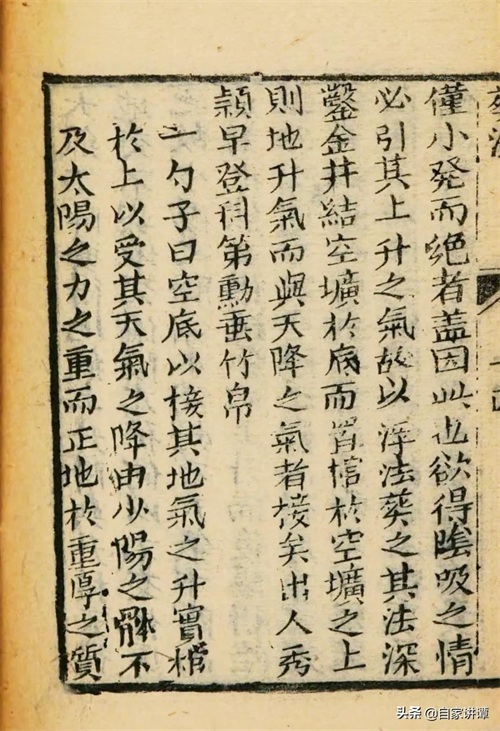 葬法
十四
僅小発而绝者盖因此也欲得陰吸之情
必引其上升之氣故以浮法葵之其法深
鑿金井結空壙於底而置棺於空壙之上
則地升氣而與天降之氣者接矣出人秀
穎早登科第勲垂竹帛
一勺子曰空底以接其地氣之升實棺
於上以受其天氣之降由少陽之體不
及太陽之力之重而正地於重厚之質
头条@自家讲谭